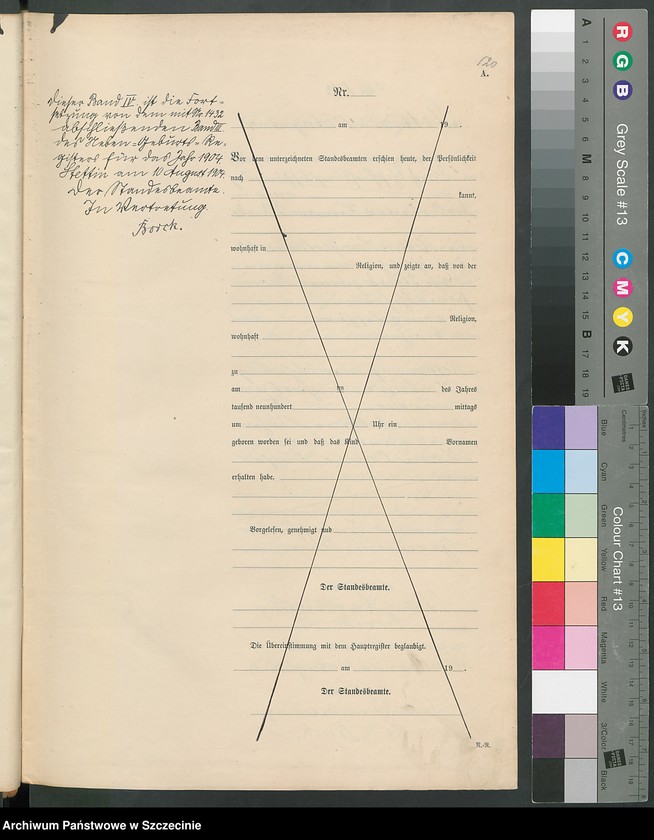 120
A.
Nr.
Dieser Band IV ist die Fort-
setzung von dem mit Nr. 1432
abschließenden Band III
des Neben-Geburts-Re-
gisters für das Jahr 1904.
Stettin am 10 August 1904.
Der Standesbeamte.
In Vertretung
Borck.
am 19 .
Vor dem unterzeichneten Standesbeamten erschien heute, der Persönlichkeit
nach
kannt,
wohnhaft in
Religion, und zeigte an, daß von der
Religion,
wohnhaft
zu
am ten des Jahres
tausend neunhundert mittags
um Uhr ein
geboren worden sei und daß das Kind Vornamen
erhalten habe.
Vorgelesen, genehmigt und
Der Standesbeamte.
Die Übereinstimmung mit dem Hauptregister beglaubigt.
am 19 .
Der Standesbeamte.
N.-R.
Grey Scale #13
R G B
C M Y K
A 1 2 3 4 5 6 M 8 9 10 11 12 13 14 15 B 17 18 19
Colour Chart #13
Blue
Cyan
Green
Yellow
Red
Magenta
White
3/Color
Black
Centimetres
Inches
Archiwum Państwowe w Szczecinie